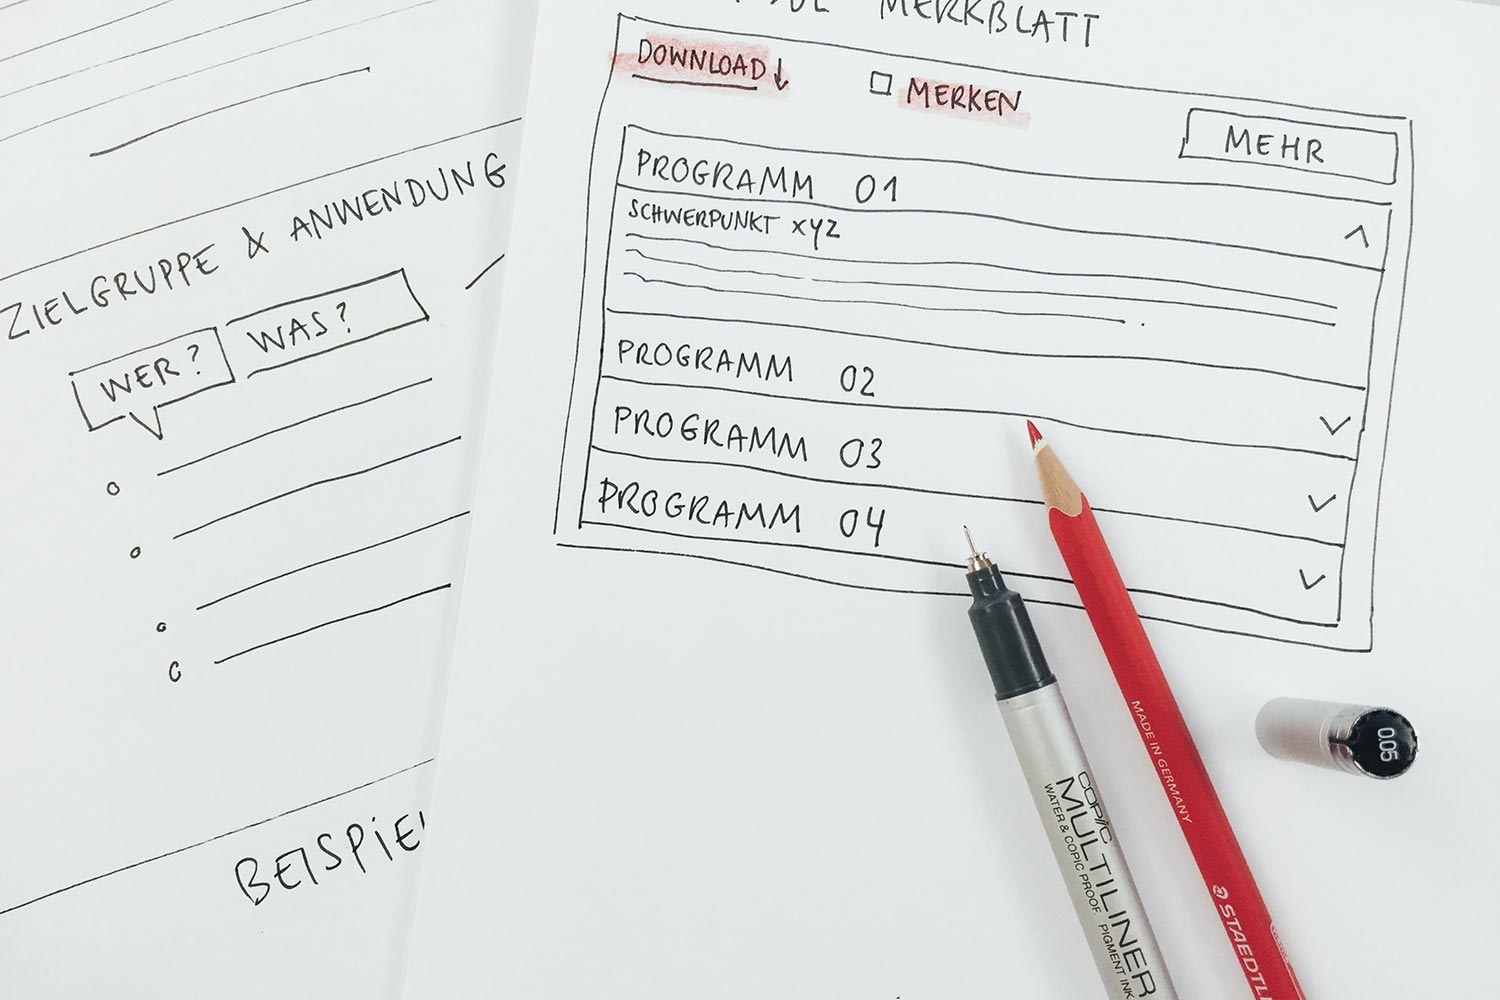 MERKBLATT
DOWNLOAD↓
MERKEN
MEHR
PROGRAMM 01
SCHWERPUNKT xyz
PROGRAMM 02
PROGRAMM 03
PROGRAMM 04
ZIELGRUPPE & ANWENDUNG
WER?
WAS?
BEISPIE
COPIC
MULTILINER
WATER & COPIC PROOF PIGMENT INK
MADE IN GERMANY
STAEDTL
0.05